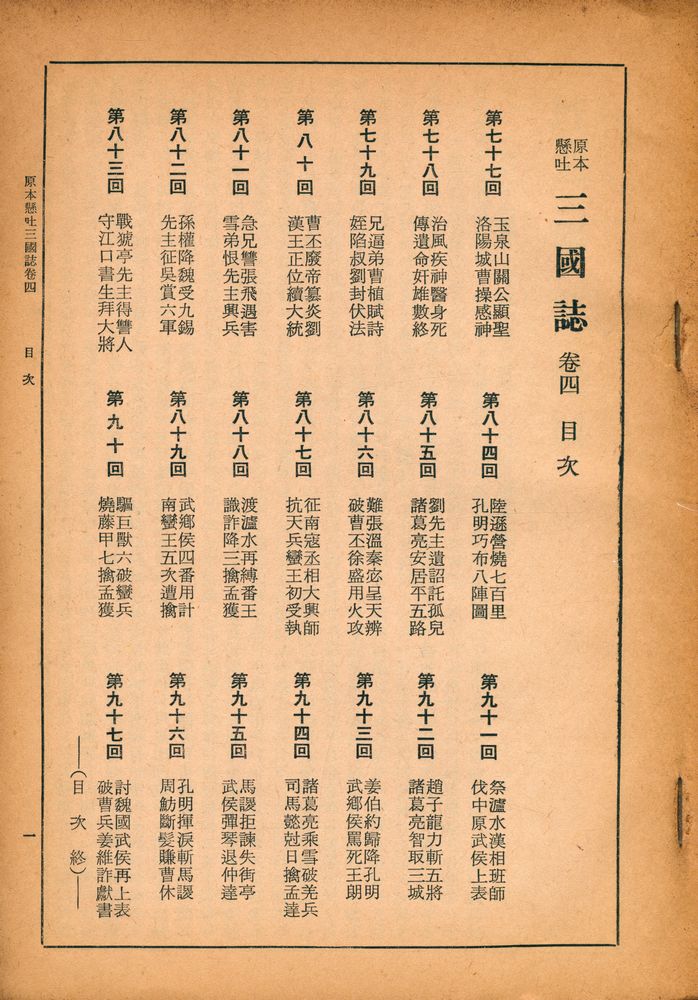 原本
懸吐
三國誌 卷四 目次
第七十七回
玉泉山關公顯聖
洛陽城曹操感神
第七十八回
治風疾神醫身死
傳遺命奸雄數終
第七十九回
兄逼弟曹植賦詩
姪陷叔劉封伏法
第八十回
曹丕廢帝篡炎劉
漢王正位續大統
第八十一回
急兄讐張飛遇害
雪弟恨先主興兵
第八十二回
孫權降魏受九錫
先主征吳賞六軍
第八十三回
戰猇亭先主得讐人
守江口書生拜大將
第八十四回
陸遜營燒七百里
孔明巧布八陣圖
第八十五回
劉先主遺詔託孤兒
諸葛亮安居平五路
第八十六回
難張溫秦宓呈天辨
破曹丕徐盛用火攻
第八十七回
征南寇丞相大興師
抗天兵蠻王初受執
第八十八回
渡瀘水再縛番王
識詐降三擒孟獲
第八十九回
武鄉侯四番用計
南蠻王五次遭擒
第九十回
驅巨獸六破蠻兵
燒藤甲七擒孟獲
第九十一回
祭瀘水漢相班師
伐中原武侯上表
第九十二回
趙子龍力斬五將
諸葛亮智取三城
第九十三回
姜伯約歸降孔明
武鄉侯罵死王朗
第九十四回
諸葛亮乘雪破羌兵
司馬懿尅日擒孟達
第九十五回
馬謖拒諫失街亭
武侯彈琴退仲達
第九十六回
孔明揮淚斬馬謖
周魴斷髮賺曹休
第九十七回
討魏國武侯再上表
破曹兵姜維詐獻書
―(目次終)―
原本懸吐三國誌卷四 目次
一